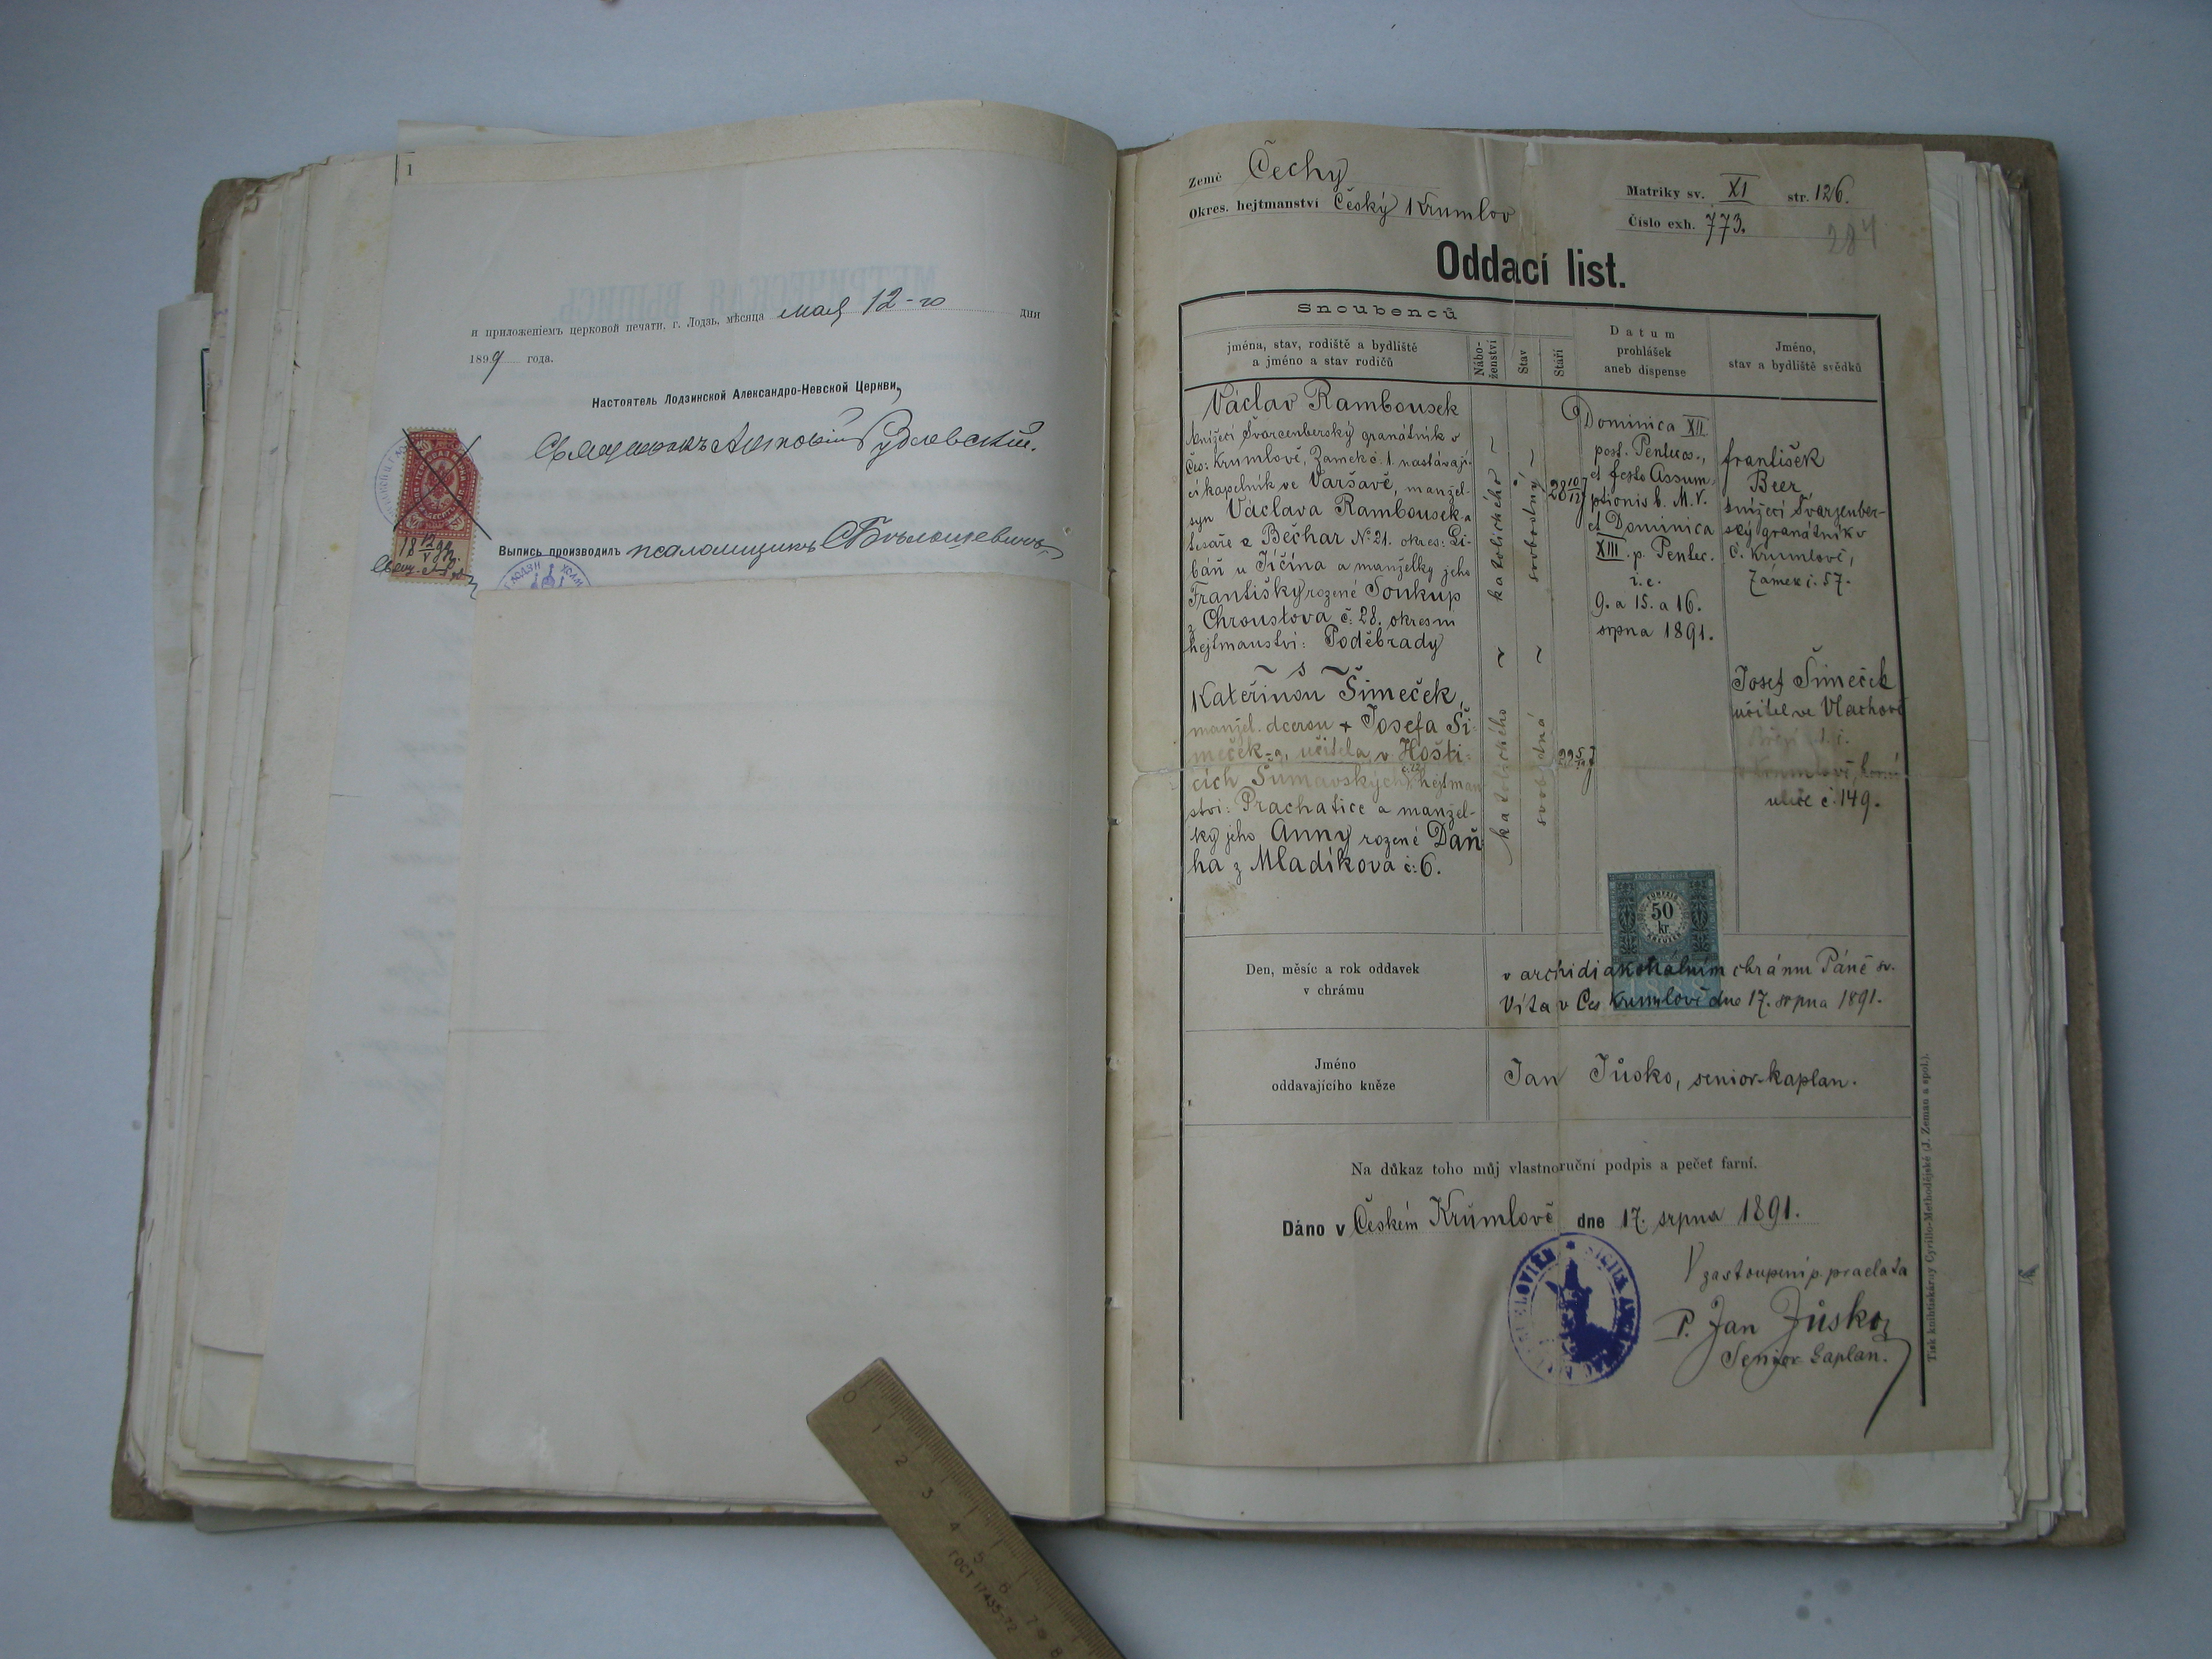 1
и приложеніемъ церковой печати. г. Лодзь, мѣсяца мая 12-го дни
1899 года.
Настоятель Лодзинской Александро-Невской Церкви,
Священникъ Антоній Рудлевскій.
18 12/V 99
Выпись производилъ псаломщикъ
Země Čechy
Okres. hejtmanství Český Krumlov
Matriky sv. XI str. 126.
Číslo exh. 773.
284
Oddací list.
Snoubenců
jména, stav, rodiště a bydliště
a jméno a stav rodičů
Nábo-
ženství
Stav
Stáří
Datum
prohlášek
aneb dispense
Jméno,
stav a bydliště svědků
Václav Rambousek
knížecí Švarcenberský granátník v
Čes: Krumlově, Zámek č. 1. nastávají-
cí kapelník ve Varšavě, manžel-
syn Václava Rambousek-a
tesaře z Bečhar No 21. okres: Li-
báň u Jíčína a manželky jeho
Františky rozené Soukup
z Chroustova č: 28. okresní
hejtmanství: Poděbrady
~ s ~
Kateřinou Šimeček,
manžel. dcerou + Josefa Ši-
meček-a, učitela v Hošti-
cích Šumavských č. 12 hejtman
ství: Prachatice a manžel-
ky jeho Anny rozené Daň-
ha z Mladíkova č: 6.
katolického ~
~ katolického
svobodný ~
~ svobodná
28 10/12
22
Dominica XII
post. Pentec.,
et festo Assum-
ptionis b. M. V.
et Dominica
XIII. p. Pentec.
i. e.
9. a 15. a 16.
srpna 1891.
František
Beer
knížecí Švarzenber-
ský granátník v
Č. Krumlově,
Zámek č. 57.
Josef Šimeček
učitel ve Vlachově
Březí t. č.
v Krumlově, horní
ulice č. 149.
50
kr
Den, měsíc a rok oddavek
v chrámu
v archidiakonalním chrámu Páně sv.
Víta v Čes Krumlově dne 17. srpna 1891.
Jméno
oddavajícího kněze
Jan Jůsko, senior-kaplan.
Na důkaz toho můj vlastnoruční podpis a pečeť farní.
Dáno v Českém Krumlově dne 17. srpna 1891.
V zastoupení p. praelata
P. Jan Jůsko,
Senior kaplan.
Tisk knihtiskárny Cyrillo-Methodějské (J. Zeman a spol.).
0 1 2 3 4 5 6 7 8
ГОСТ 17435-72